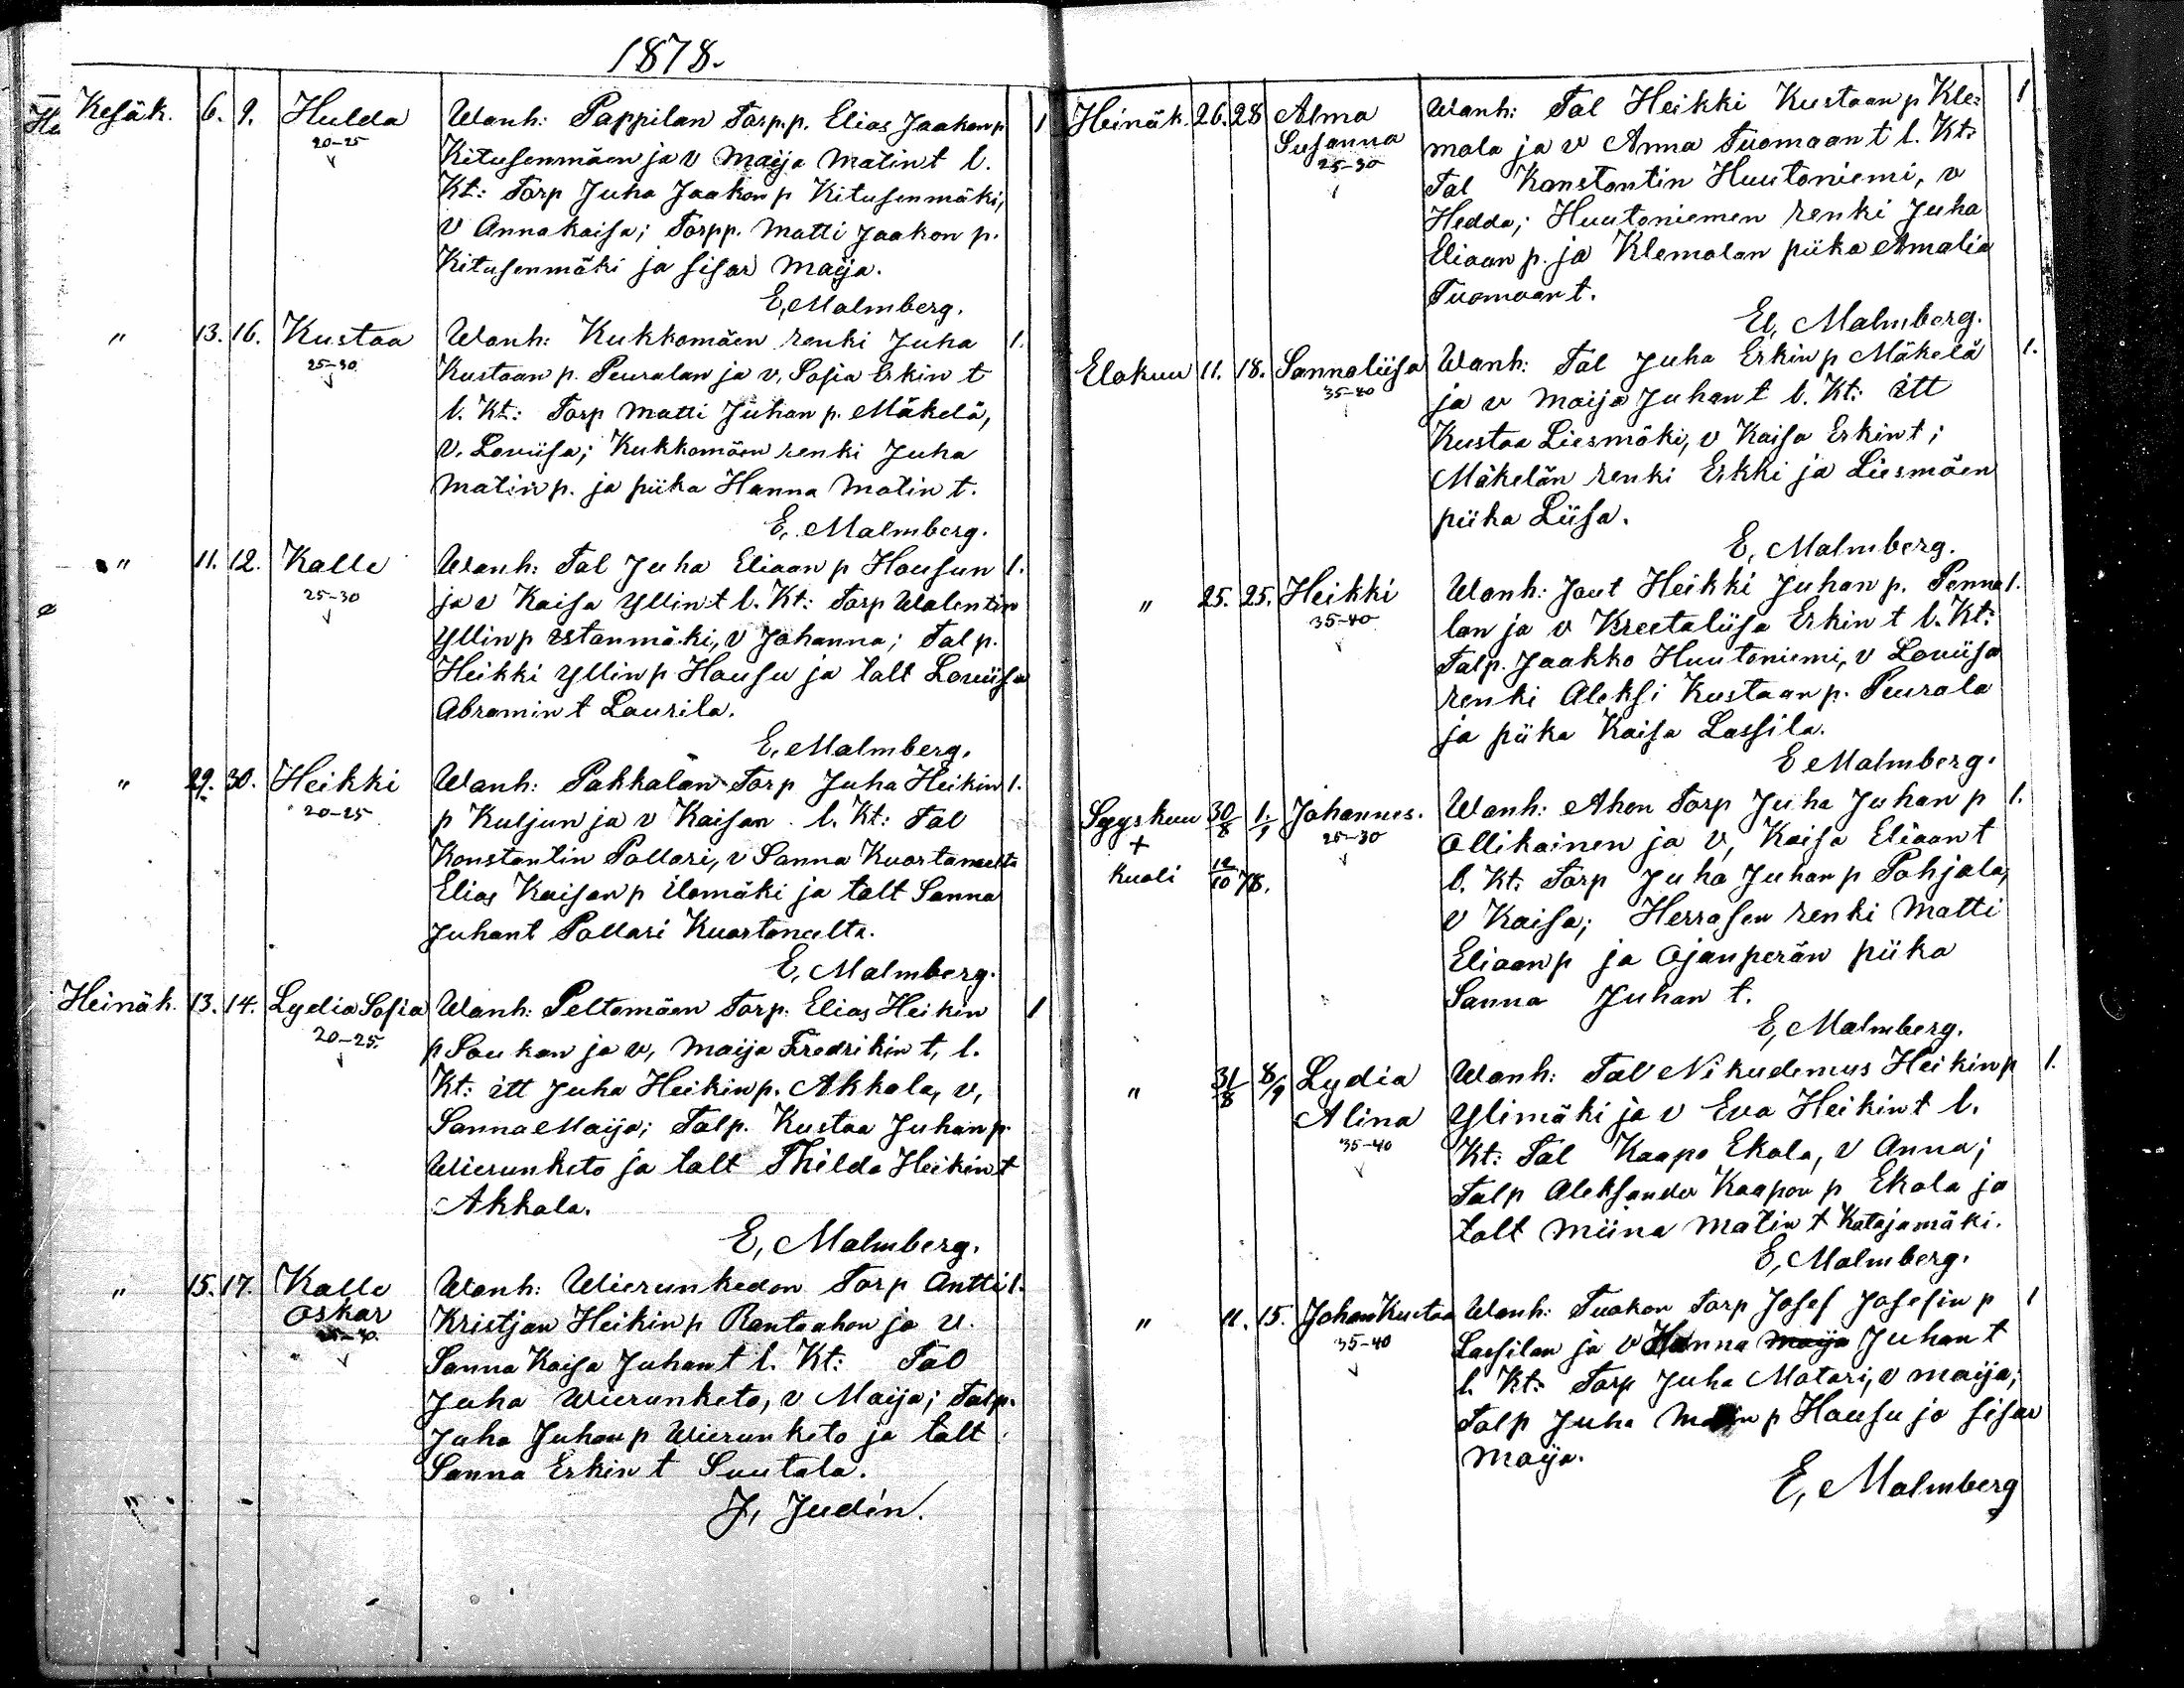 1878.
Kesäk. 6. 9. Hulda Wanh: Pappilan Torp.p. Elias Jaakon p 1
20-25 Kitusenmäen ja v Maija Matin t l.
Kt: Torp Juha Jaakon p Kitusenmäki,
v Annakaisa; Torpp. Matti Jaakon p.
Kitusenmäki ja sisar Maija.
E, Malmberg.
" 13. 16. Kustaa Wanh: Kukkomäen renki Juha 1.
25-30 Kustaan p. Peuralan ja v, Sofia Erkin t
l. Kt: Torp Matti Juhan p. Mäkelä,
v. Loviisa; Kukkomäen renki Juha
Matin p. ja piika Hanna Matin t.
E, Malmberg.
" 11. 12. Kalle Wanh: Tal Juha Eliaan p Housun 1.
25-30 ja v Kaisa Yllin t l. Kt: Torp Walentin
Yllin p Ustanmäki, v Johanna; Talp.
Heikki Yllin p Housu ja talt Loviisa
Abramin t Laurila.
E, Malmberg.
" 29. 30. Heikki Wanh: Pakkalan Torp Juha Heikin 1.
20-25 p Kuljun ja v Kaisan l. Kt: Tal
Konstantin Pollari, v Sanna Kuortaneelta
Elias Kaisan p Ilomäki ja talt Sanna
Juhant Pollari Kuortaneelta.
E, Malmberg.
Heinäk. 13. 14. Lydia Sofia Wanh: Peltomäen Torp. Elias Heikin 1
20-25. p Soukan ja v, Maija Fredrikin t, l.
Kt: itt Juha Heikin p. Akkala, v,
Sanna Maija; Talp. Kustaa Juhan p.
Wierunketo ja talt Thilda Heikin t
Akkala.
E, Malmberg.
" 15. 17. Kalle Wanh: Wierunkedon Torp Antti 1.
Oskar Kristjan Heikin p Rantaahon ja v.
Sanna Kaisa Juhan t l. Kt: Tal
Juha Wierunketo, v Maija; Talp.
Juha Juhan p Wierunketo ja talt
Sanna Erkin t Suutala.
J, Judin.
Heinäk. 26. 28 Alma Wanh: Tal Heikki Kustaan p Kle= 1
Susanna mola ja v Anna Tuomaan t l. Kt:
25-30 Tal Konstantin Huutoniemi, v
Hedda; Huutoniemen renki Juha
Eliaan p. ja Klemolan piika Amalia
Tuomaan t.
E, Malmberg.
Elokuu 11. 18. Sannaliisa Wanh: Tal Juha Erkin p Mäkelä 1.
35-40 ja v Maija Juhan t l. Kt: itt
Kustaa Liesmäki, v Kaisa Erkin t;
Mäkelän renki Erkki ja Liesmäen
piika Liisa.
E, Malmberg.
" 25. 25. Heikki Wanh: Jout Heikki Juhan p. Penna 1.
35-40 lan ja v Kreetaliisa Erkin t l. Kt:
Talp. Jaakko Huutoniemi, v Loviisa
renki Aleksi Kustaan p. Peurala
ja piika Kaisa Lassila.
E Malmberg.
Syyskuu 30/8 1./9 Johannes. Wanh: Ahon Torp Juha Juhan p 1.
+ 25-30 Ollikainen ja v, Kaisa Eliaan t
kuoli 12/10 78. l. Kt: Torp Juha Juhan p Pohjola,
v Kaisa; Herrasen renki Matti
Eliaan p ja Ojanperän piika
Sanna Juhan t.
E, Malmberg.
" 31/8 8/9 Lydia Wanh: Tal Nikudemus Heikin p 1.
Alina Ylimäki ja v Eva Heikin t l.
35-40 Kt: Tal Kaapo Ekola, v Anna;
Talp Aleksander Kaapon p Ekola ja
talt Miina Matin t Katajamäki.
E, Malmberg.
" 11. 15. Johan Kustaa Wanh: Tuokon Torp Josef Josefin p 1
35-40 Lassilan ja v Hanna Maija Juhan t
l. Kt: Torp Juha Matari, v Maija;
Talp Juha Matin p Housu ja sisar
Maija.
E, Malmberg